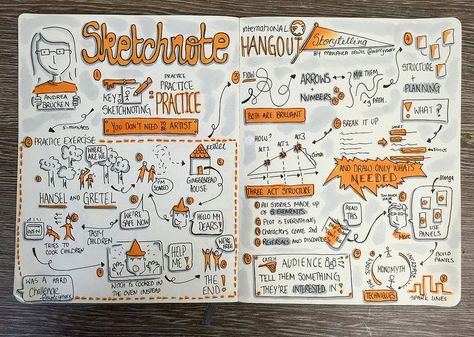 Sketchnote
ANDREA
BRÜCKEN
5-minutes
1
KEY
SKETCHNOTING
PRACTICE
PRACTICE
PRACTICE
YOU DON'T NEED TO BE ARTIST
2 PRACTICE EXERCISE
WHERE
ARE WE
I'M
SCARED
GINGERBREAD
HOUSE
HANSEL AND GRETEL
WE'RE
SAFE NOW
HELLO MY
DEARS!
TASTY
CHILDREN
TRIES TO
COOK CHILDREN
HELP
ME!
WE'RE
FREE
WITCH IS COOKED IN
THE OVEN INSTEAD
THE
END!
WAS A HARD
Challenge
international
HANGOUT
Storytelling
BY MAKAYLA LEWIS
3
FLOW
ARROWS
NUMBERS
MIX THEM
PATH
BOTH ARE BRILLIANT
4
STRUCTURE
+
PLANNING
WHAT?
HOW?
ACT 1
ACT 2
ACT 3
BREAK IT UP
AND DRAW ONLY WHAT'S
NEEDED
THREE ACT STRUCTURE
ALL STORIES MADE OF
8 ELEMENTS
PLOT is EVERYTHING
Characters come 2nd
REVERSALS AND DISCOVERIES
READ
THIS
Manga
USE
PANELS
BUILD
PANELS
AUDIENCE
TELL THEM SOMETHING
THEY'RE INTERESTED IN!
MONOMYTH
TECHNIQUES
SPARK LINES